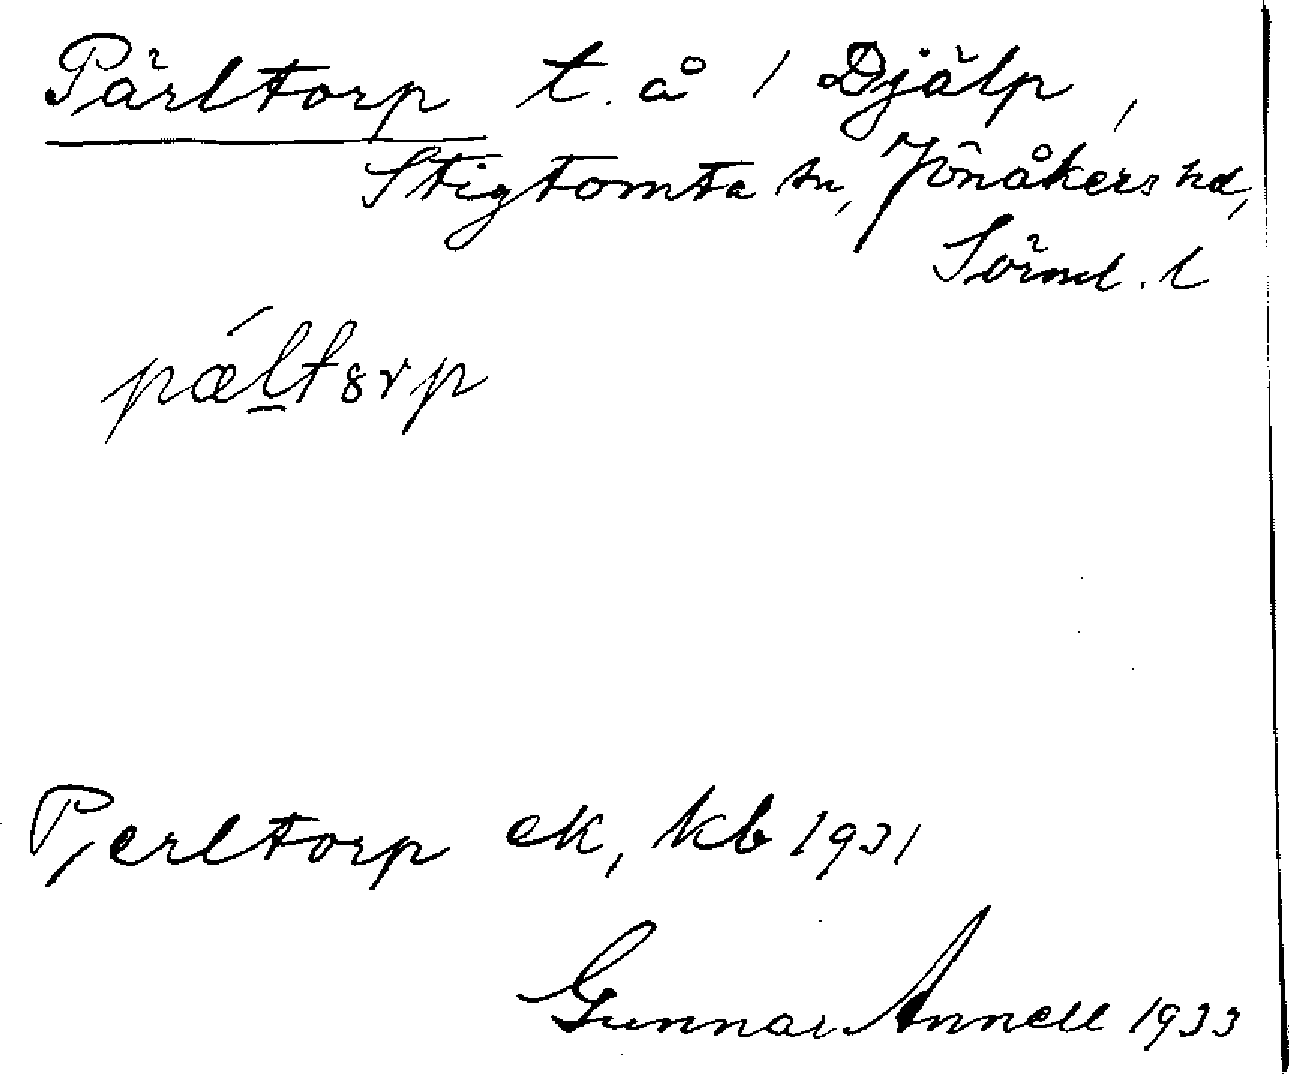 Pärltorp t. å 1 Djälp,
Stigtomta sn, Jönåkers hd,
Sörml. l
pǽl̠tɞrp
Pjerltorp ek, kb 1931
Gunnar Annell 1933